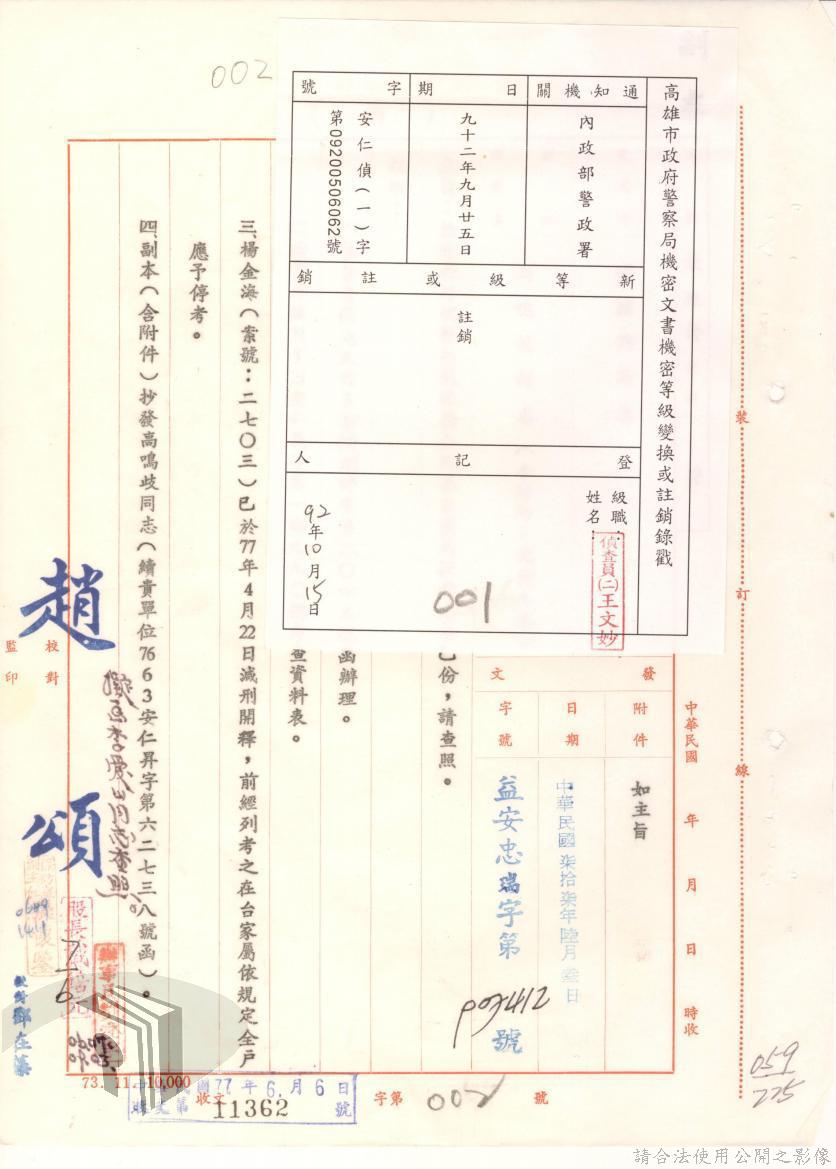 002
高雄市政府警察局機密文書機密等級變換或註銷錄戳
通知機關
內政部警政署
日期
九十二年九月廿五日
字號
安仁偵(一)字
第09200506062號
新等級或註銷
註銷
登記人
級職:
姓名:
偵查員(二)王文妙
92年10月15日
001
裝
訂
線
中華民國 年 月 日 時收
發文
附件
如主旨
日期
中華民國柒拾柒年陸月叁日
字號
益安忠瑞字第
號
份,請查照。
函辦理。
查資料表。
三、楊金海(案號:二七〇三)已於77年4月22日減刑開釋,前經列考之在台家屬依規定全戶
應予停考。
四、副本(含附件)抄發高鳴歧同志(續貴單位7663安仁昇字第六二七三八號函)。
趙
頌
校對
監印
73. 11. 10,000
收文
77年6月6日
收文第11362號
字第
002
號
059
225
請合法使用公開之影像